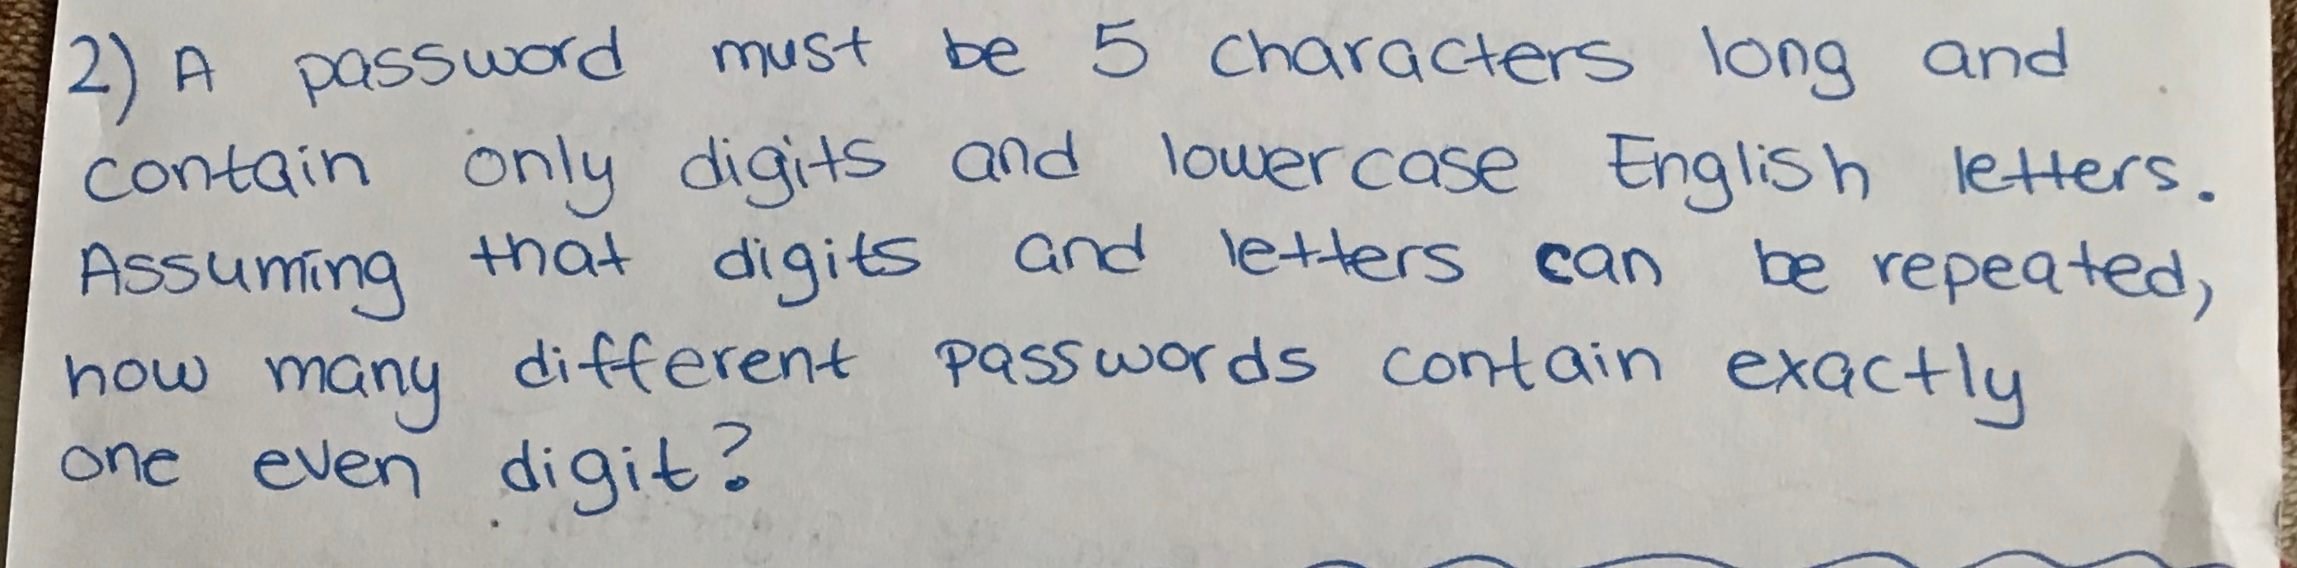 2) A password must be 5 characters long and
contain only digits and lowercase English letters.
Assuming that digits and letters can be repeated,
how many different passwords contain exactly
one even digit?